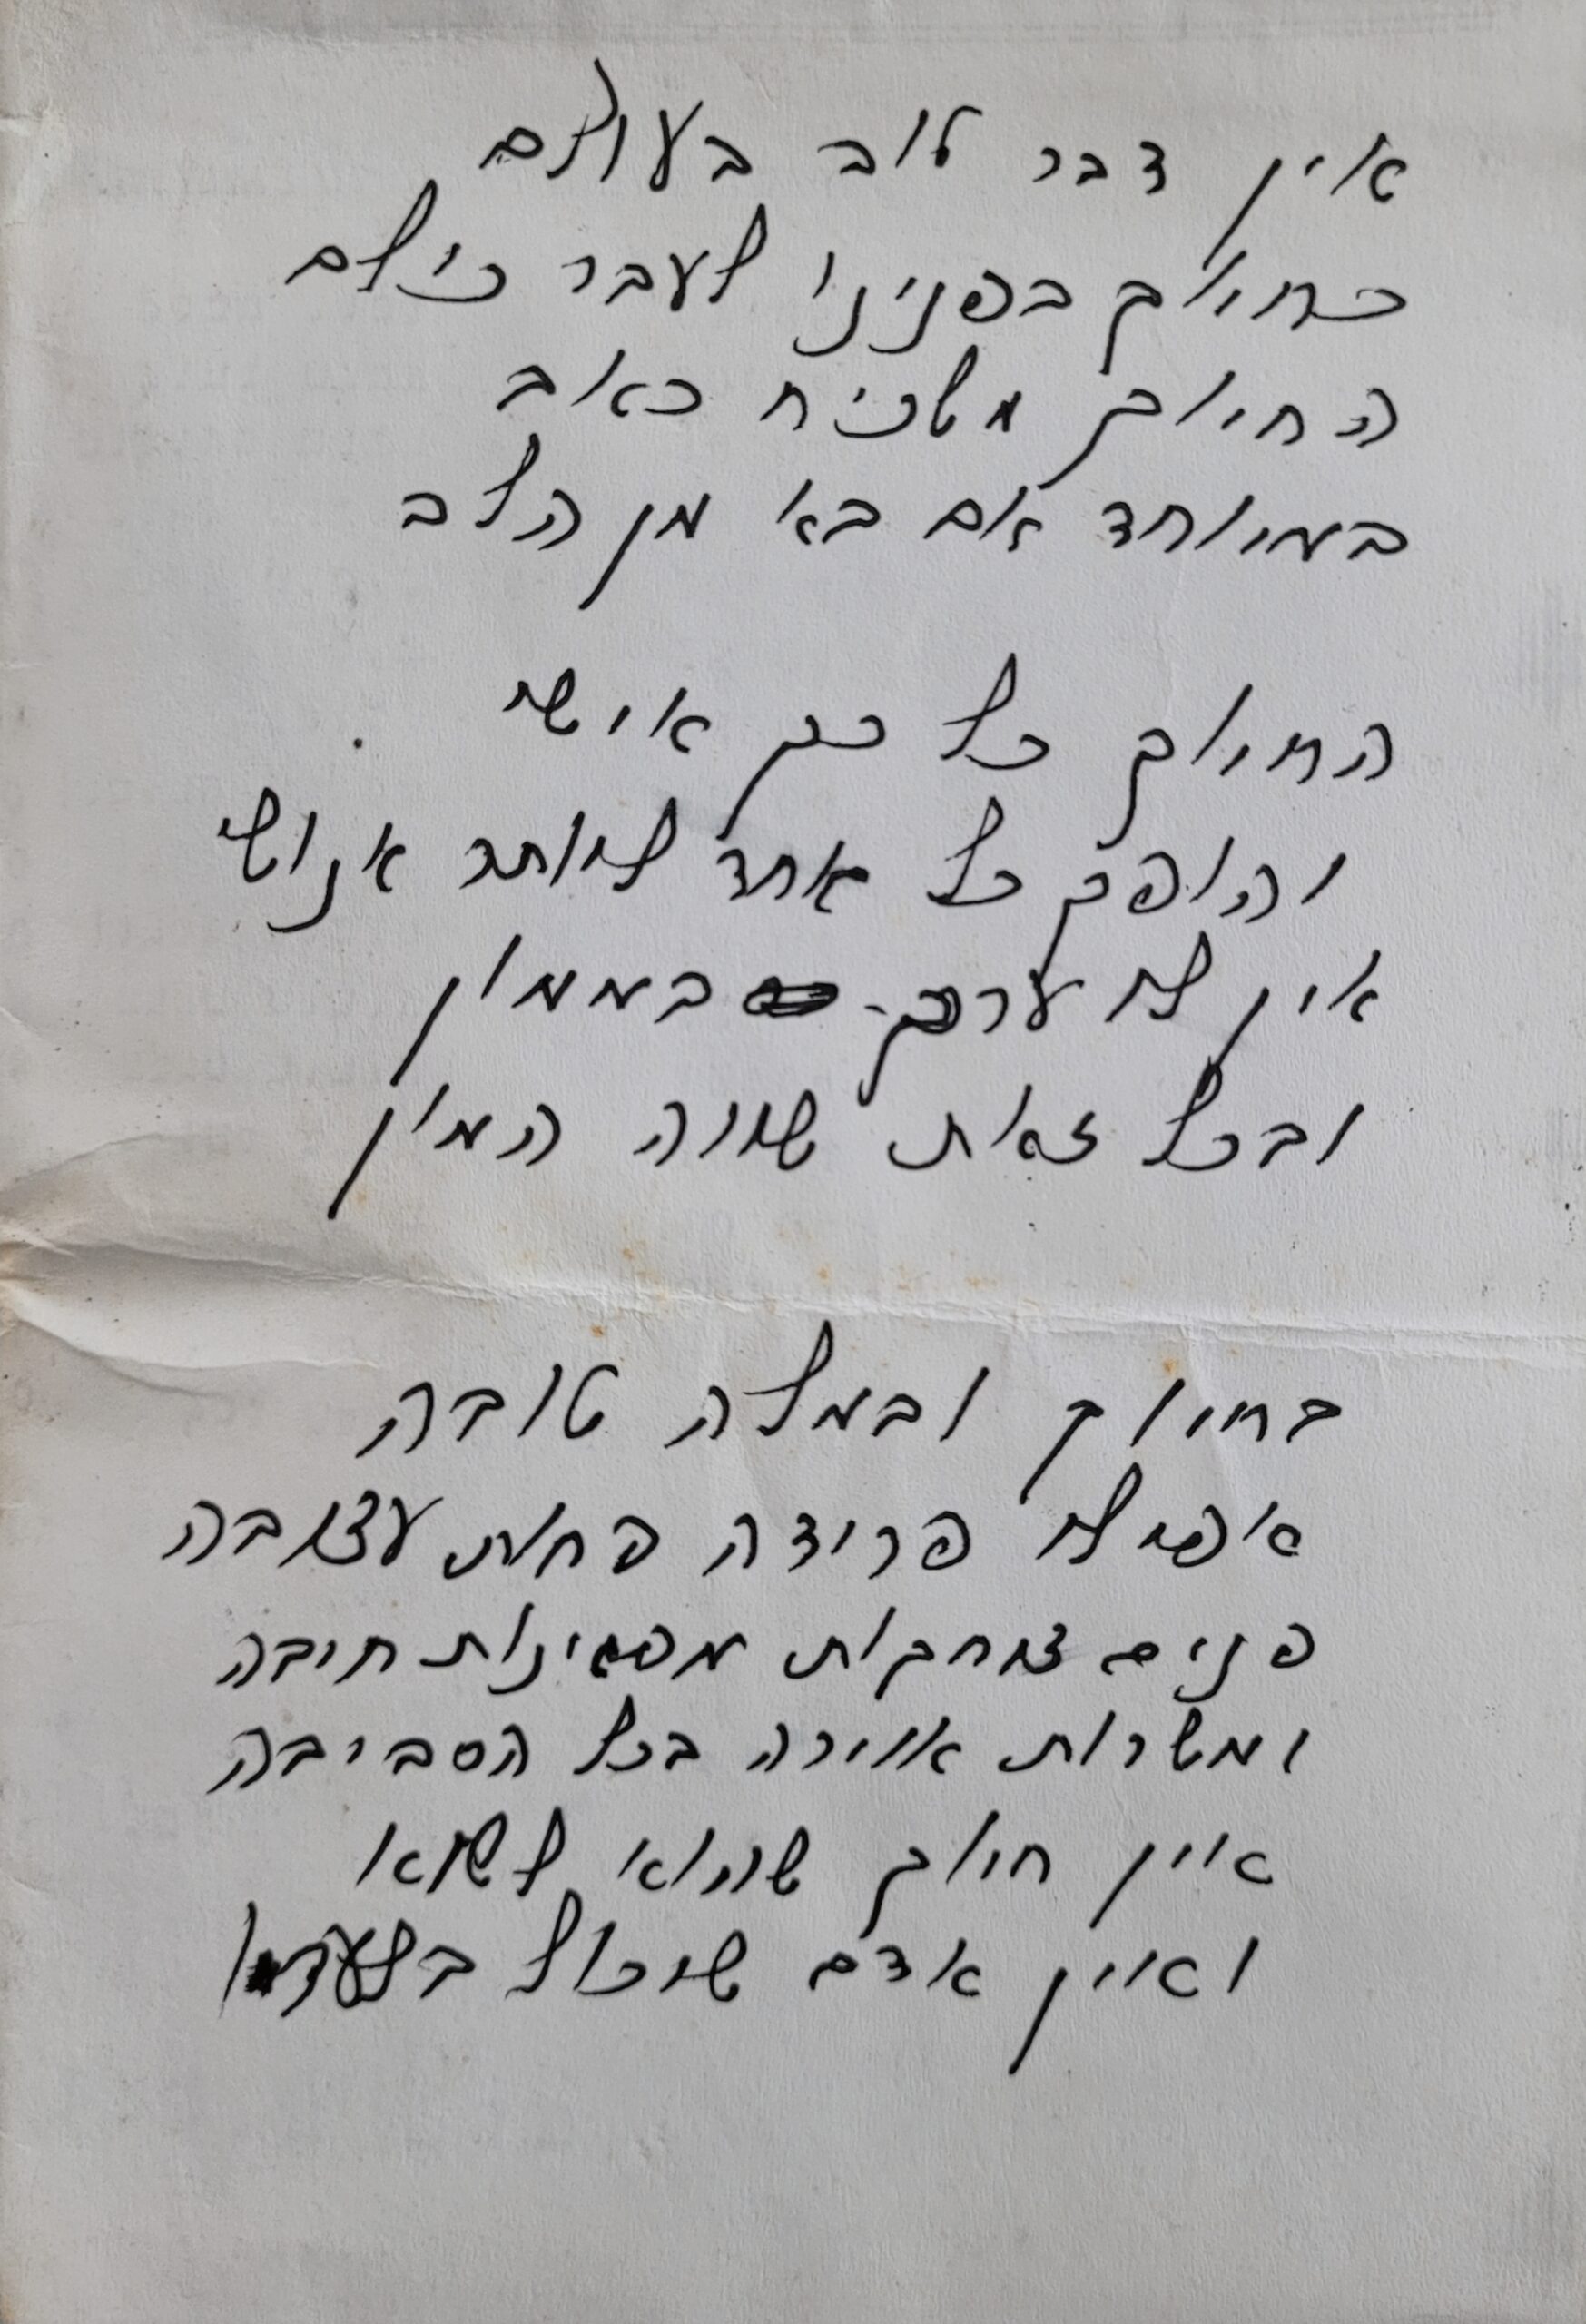 אין דבר טוב בעולם
כחיוך בפנינו לעבר כולם
החיוך משכיח כאב
במיוחד אם בא מן הלב
החיוך כל כך אישי
והופך כל אחד ליותר אנושי
אין לו ערך במממון
ובכל זאת שווה המון
בחיוך ובמלה טובה
אפילו פרידה פחות עצובה
פנים צוחקות מפגינות חיבה
ומשרות אווירה בכל הסביבה
אין חיוך שהוא לשווא
ואין אדם שיכול בלעדיו